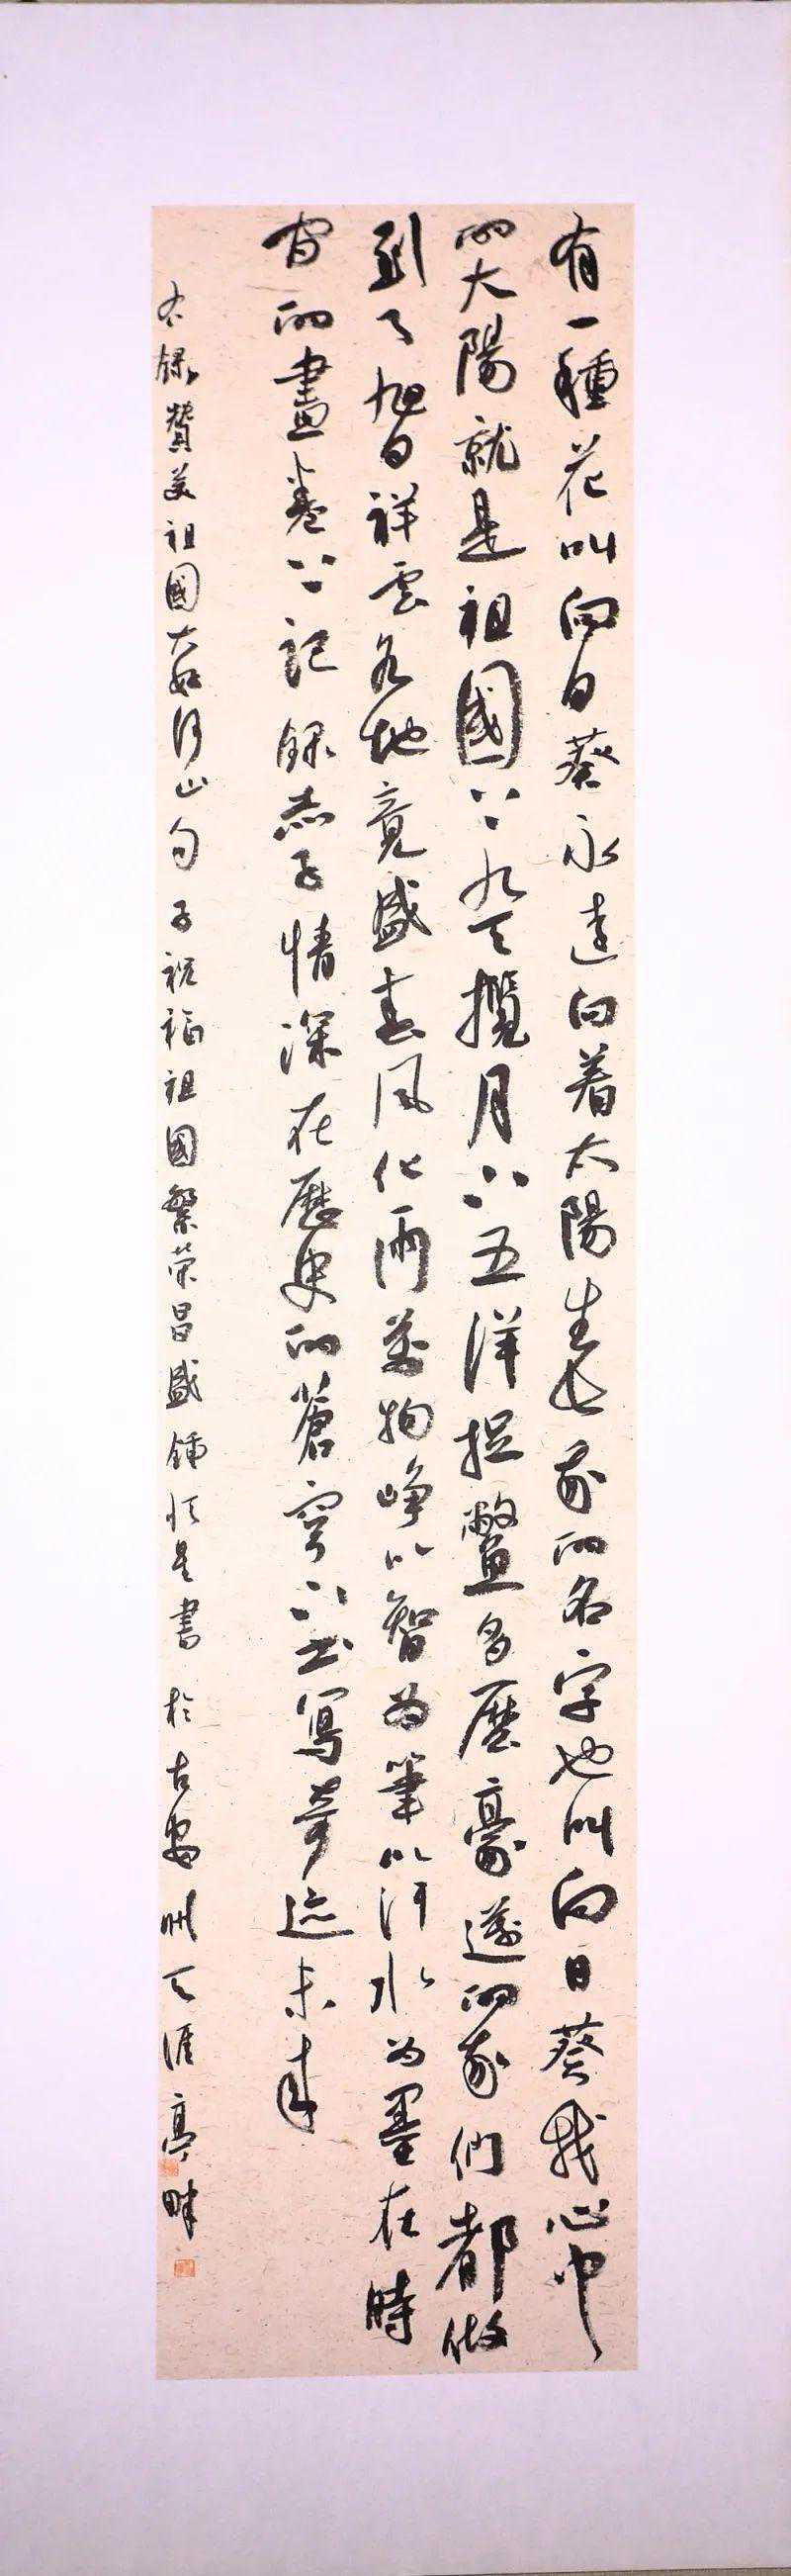 有一種花叫向日葵永遠向着太陽生長我的名字也叫向日葵我心中
的太陽就是祖國下九天攬月下五洋捉鱉多麼豪邁的我們都做
到了旭日祥雲各地竟盛春風化雨萬物峥以智為筆以汗水為墨在時
宙的畫卷上記錄赤子情深在歷史的蒼穹下書寫奇迹未来
右錄贊美祖國大好河山句子祝福祖國繁荣昌盛鍾恒星書於古安州天涯亭畔